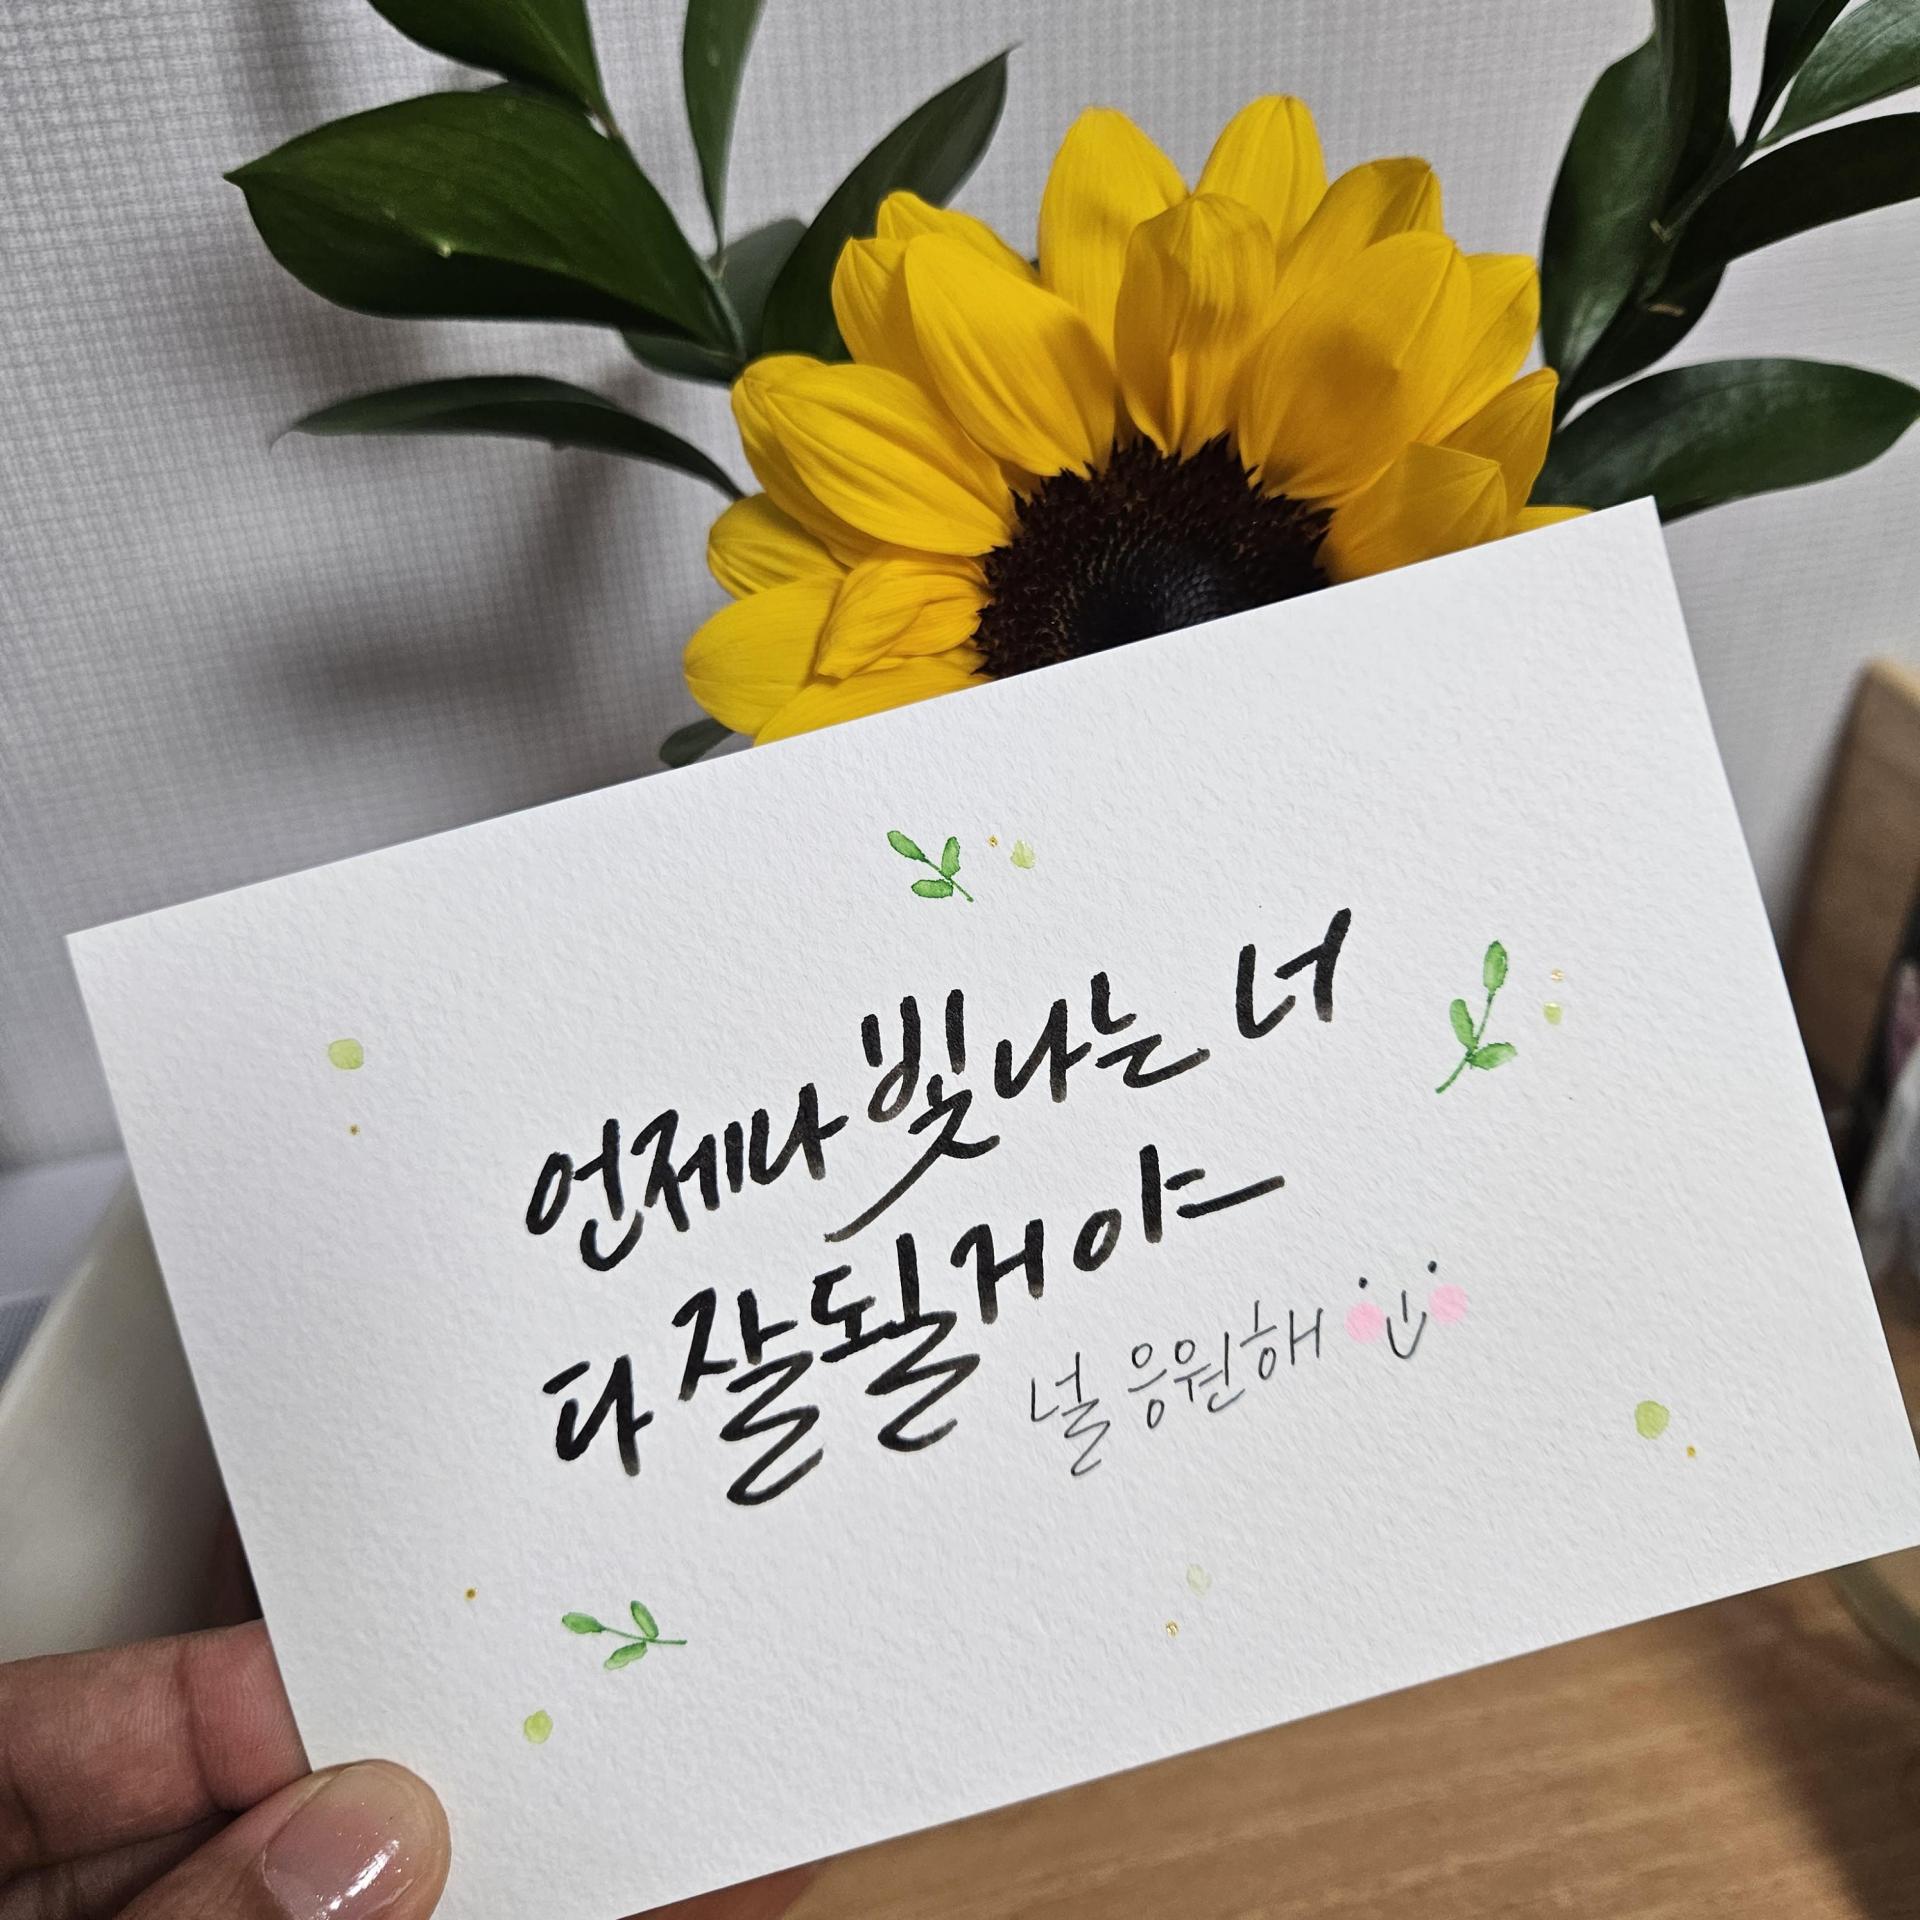 언제나 빛나는 너
다 잘될거야
널 응원해